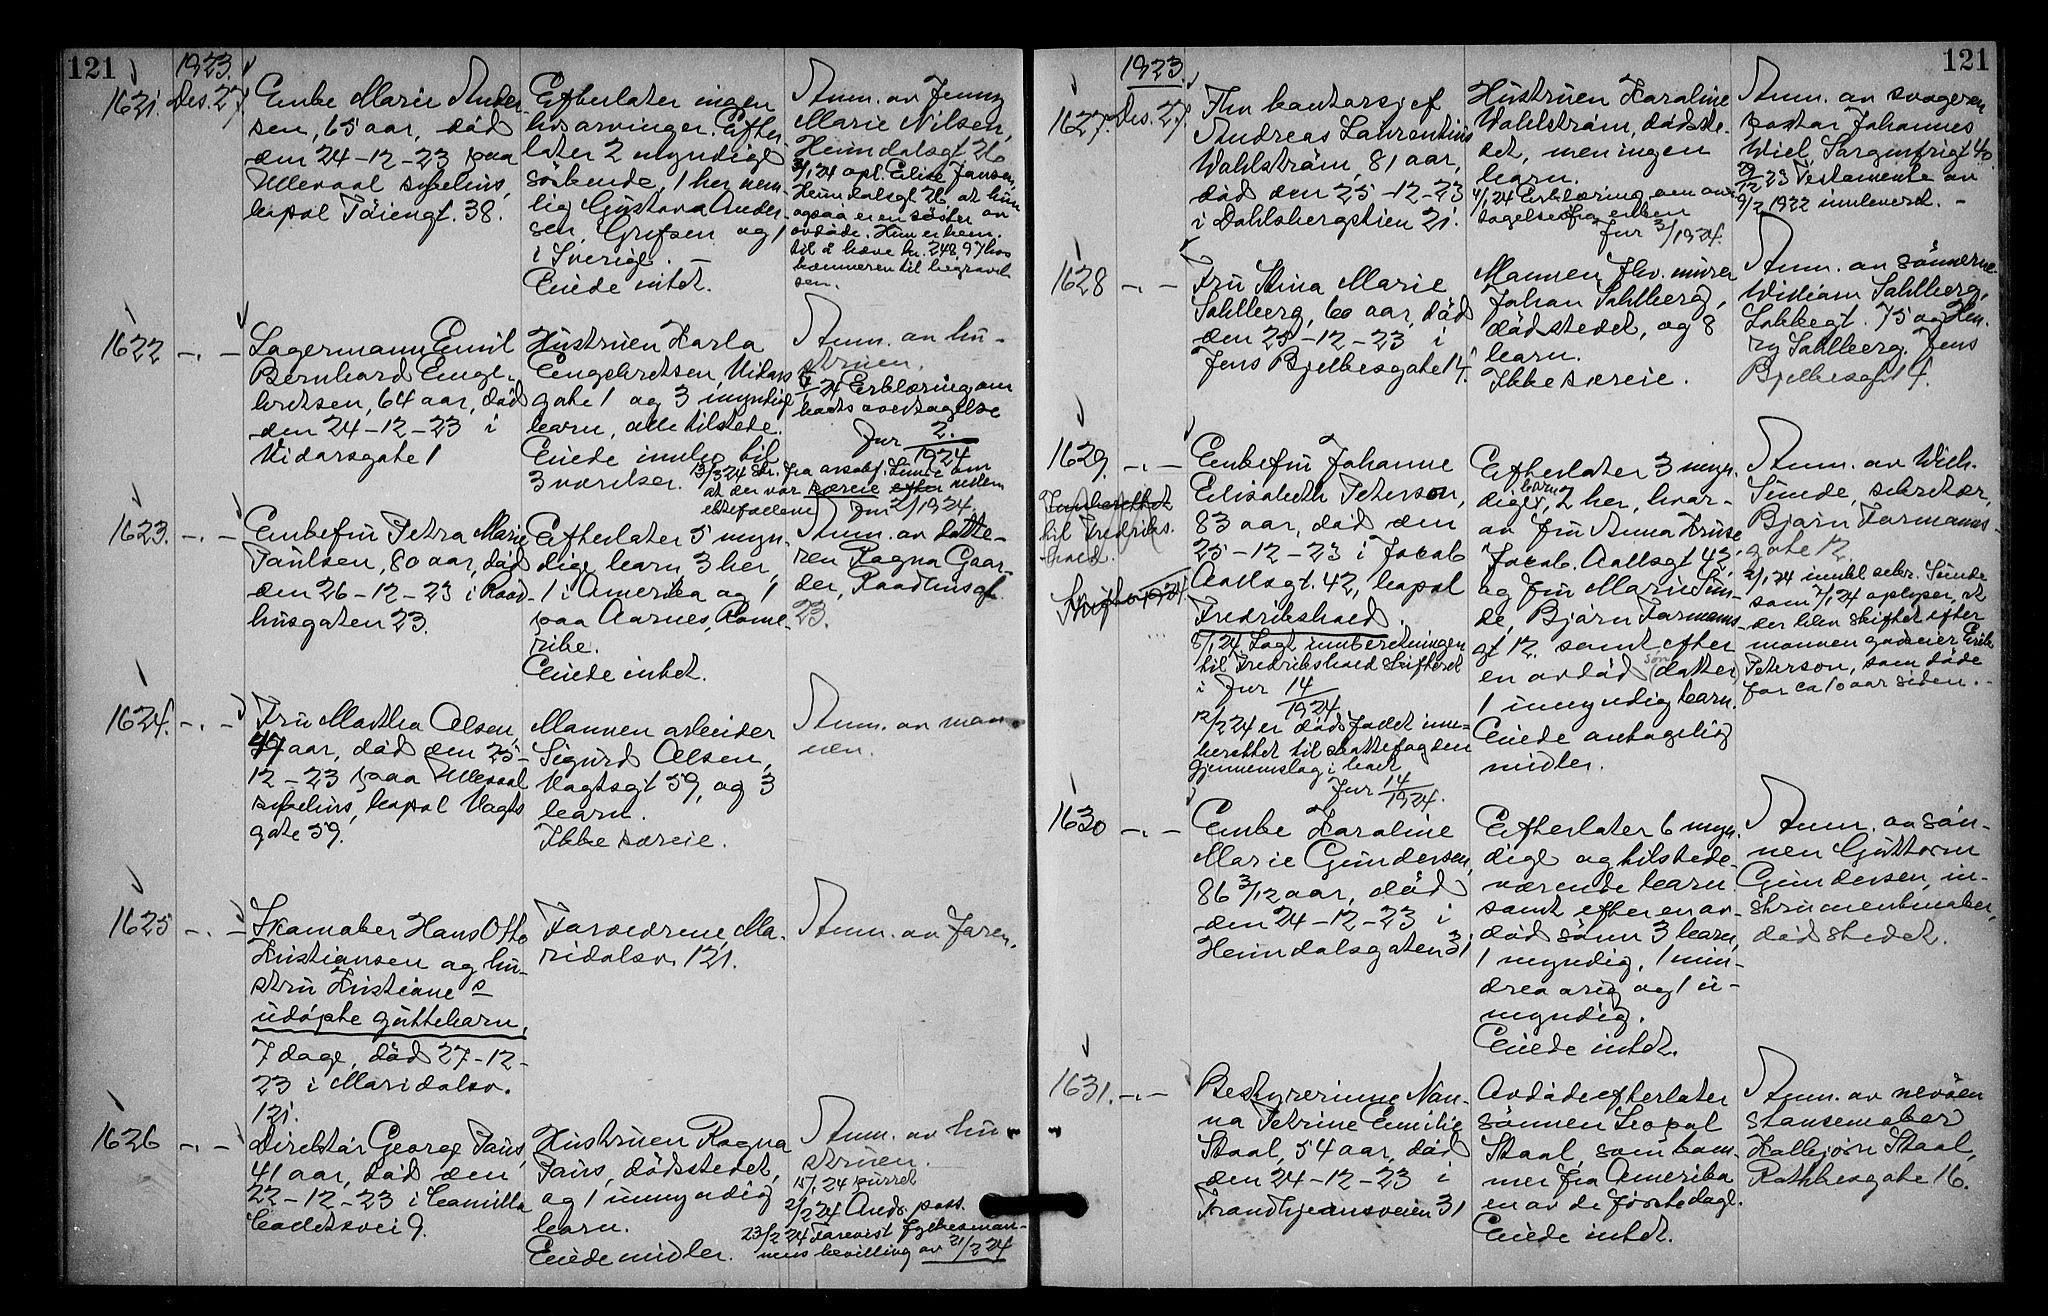 121
1923.
1621. Des. 27.
Enke Marie Ander-
sen, 65 aar, död
den 24-12-23 paa
Ullevaal sykehus,
bopæl Töiengt. 38.
Efterlater ingen
livsarvinger. Efter-
later 2 myndige
söskende, 1 her, nem-
lig Gustava Ander-
sen, Grefsen og 1
i Sverige. -
Eiede intet.
Anm. av Jenny
Marie Nilsen,
Heimdalsgt 26
3/1 24 opl. Elise Jansen,
Heimdalsgt 26, at hun
ogsaa er en söster av
avdöde. Hun er bem.
til å hæve kr. 248,97 hos
kæmneren til begravel-
sen.
1622 -.-
Lagermann Emil
Bernhard Enge-
bretsen, 64 aar, död
den 24-12-23 i
Vidarsgate 1
Hustruen Karla
Engebretsen, Vidars
gate 1 og 3 myndige
barn, alle tilstede.
Eiede innbo til
3 værelser.
Anm. av hu-
struen.
/1 24 Erklæring om
boets overtagelse
Jnr 2./1924
13/3 24 Skr. fra
at der var særeie mellem
ektefællene Jnr 2/1924.
1623. -.-
Enkefru Petra Marie
Paulsen, 80 aar, död
den 26-12-23 i Raad-
husgaten 23.
Efterlater 5 myn-
dige barn 3 her,
1 i Amerika og 1
paa Aarnes, Rome-
rike.
Eiede intet.
Anm. av datte-
ren Ragna Gaar-
der, Raadhusgt
23.
1624. -.-
Fru Martha Olsen,
47 aar, död den 25-
12-23 paa Ullevaal
sykehus, bopæl Vogts
gate 59.
Mannen arbeider
Sigurd Olsen,
Vogtsgt 59, og 3
barn.
Ikke særeie.
Anm. av man-
nen.
1625 -.-
Skomaker Hans Otto
Kristiansen og hu-
stru Kristiane's
udöpte guttebarn,
7 dage, död 27-12-
23 i Maridalsv.
121.
Forældrene, Ma-
ridalsv. 121.
Anm. av faren.
1626 -.-
Direktör George Paus,
41 aar, död den
22-12-23 i Camilla
Colletsvei 9.
Hustruen Ragna
Paus, dödsstedet,
og 1 umyndig
barn.
Eiede midler.
Anm. av hu-
struen.
15/1 24 purret
2/2 24 Ands. pass.
23/2 24 Forevist fylkesman-
nens bevilling av 21/2 24
121
1923.
1627. Des. 27.
Fhv kontorsjef
Andreas Laurentius
Wahlström, 81 aar,
död den 25-12-23
i Dahlsbergstien 21.
Hustruen Karoline
Wahlström, dödsste-
det, men ingen
barn.
4/1 24 Erklæring om over-
tagelse fra enken
Jnr 3/1924.
Anm. av svogeren
pastor Johannes
Wiel, Sorgenfrigt 40.
29/12-23 Testamente av
9/2 1922 innlevert. -
1628 -.-
Fru Stina Marie
Sahlberg, 60 aar, död
den 25-12-23 i
Jens Bjelkesgate 14.
Mannen fhv. murer
Johan Sahlberg,
dödsstedet, og 8
barn.
Ikke særeie.
Anm. av sönnerne
William Sahlberg,
Lakkegt. 75 og Hen-
ry Sahlberg, Jens
Bjelkesgt 14.
1629. -.-
Innberettet
til Fredriks-
hald.
Enkefru Johanne
Elisabeth Peterson,
83 aar, död den
25-12-23 i Jacob
Aallsgt. 42, bopæl
Fredrikshald.
8/1 24 Sagt innberetningen
til Fredrikshald skifteret
i Jnr 14/1924
12/2 24 er dödsfaldet inn-
berettet til skattefogden
Gjennemslag i boet
Jnr 14/1924.
Efterlater 3 myn-
dige barn, 2 her, hvor-
av fru Anna Kruse
Jacob Aallsgt 42,
og fru Marie Sun-
de, Bjørn Farmanns-
gt 12. samt efter
en avdöd datter
1 umyndig barn.
Eiede antagelig
midler.
Anm. av Wilh.
Sunde, sekretær,
Bjørn Farmanns-
gate 12.
2/1 24 innkl sekr. Sunde
som 7/1 24 oplyser, at
der blev skiftet efter
mannen Erik
Peterson, som döde
for ca 10 aar siden. -
1630 -.-
Enke Karoline
Marie Gundersen,
86 3/12 aar, död
den 24-12-23 i
Heimdalsgaten 31
Efterlater 6 myn-
dige og tilstede-
værende barn
samt efter en av-
död sönn 3 barn,
1 myndig, 1 min-
dreaarig og 1 u-
myndig.
Eiede intet.
Anm. av sön-
nen Guttorm
Gundersen, in-
strumentmaker,
dödsstedet.
1631. -.-
Bestyrerinne Nan-
na Petrine Emilie
Staal, 54 aar, död
den 24-12-23 i
Trondhjemsveien 31
Avdöde efterlater
sönnen Leopol
Staal, som kom-
mer fra Amerika
en av de förste dage.
Eiede intet.
Anm. av nevöen
stansemaker
Hallbjörn Staal,
Rathkesgate 16.